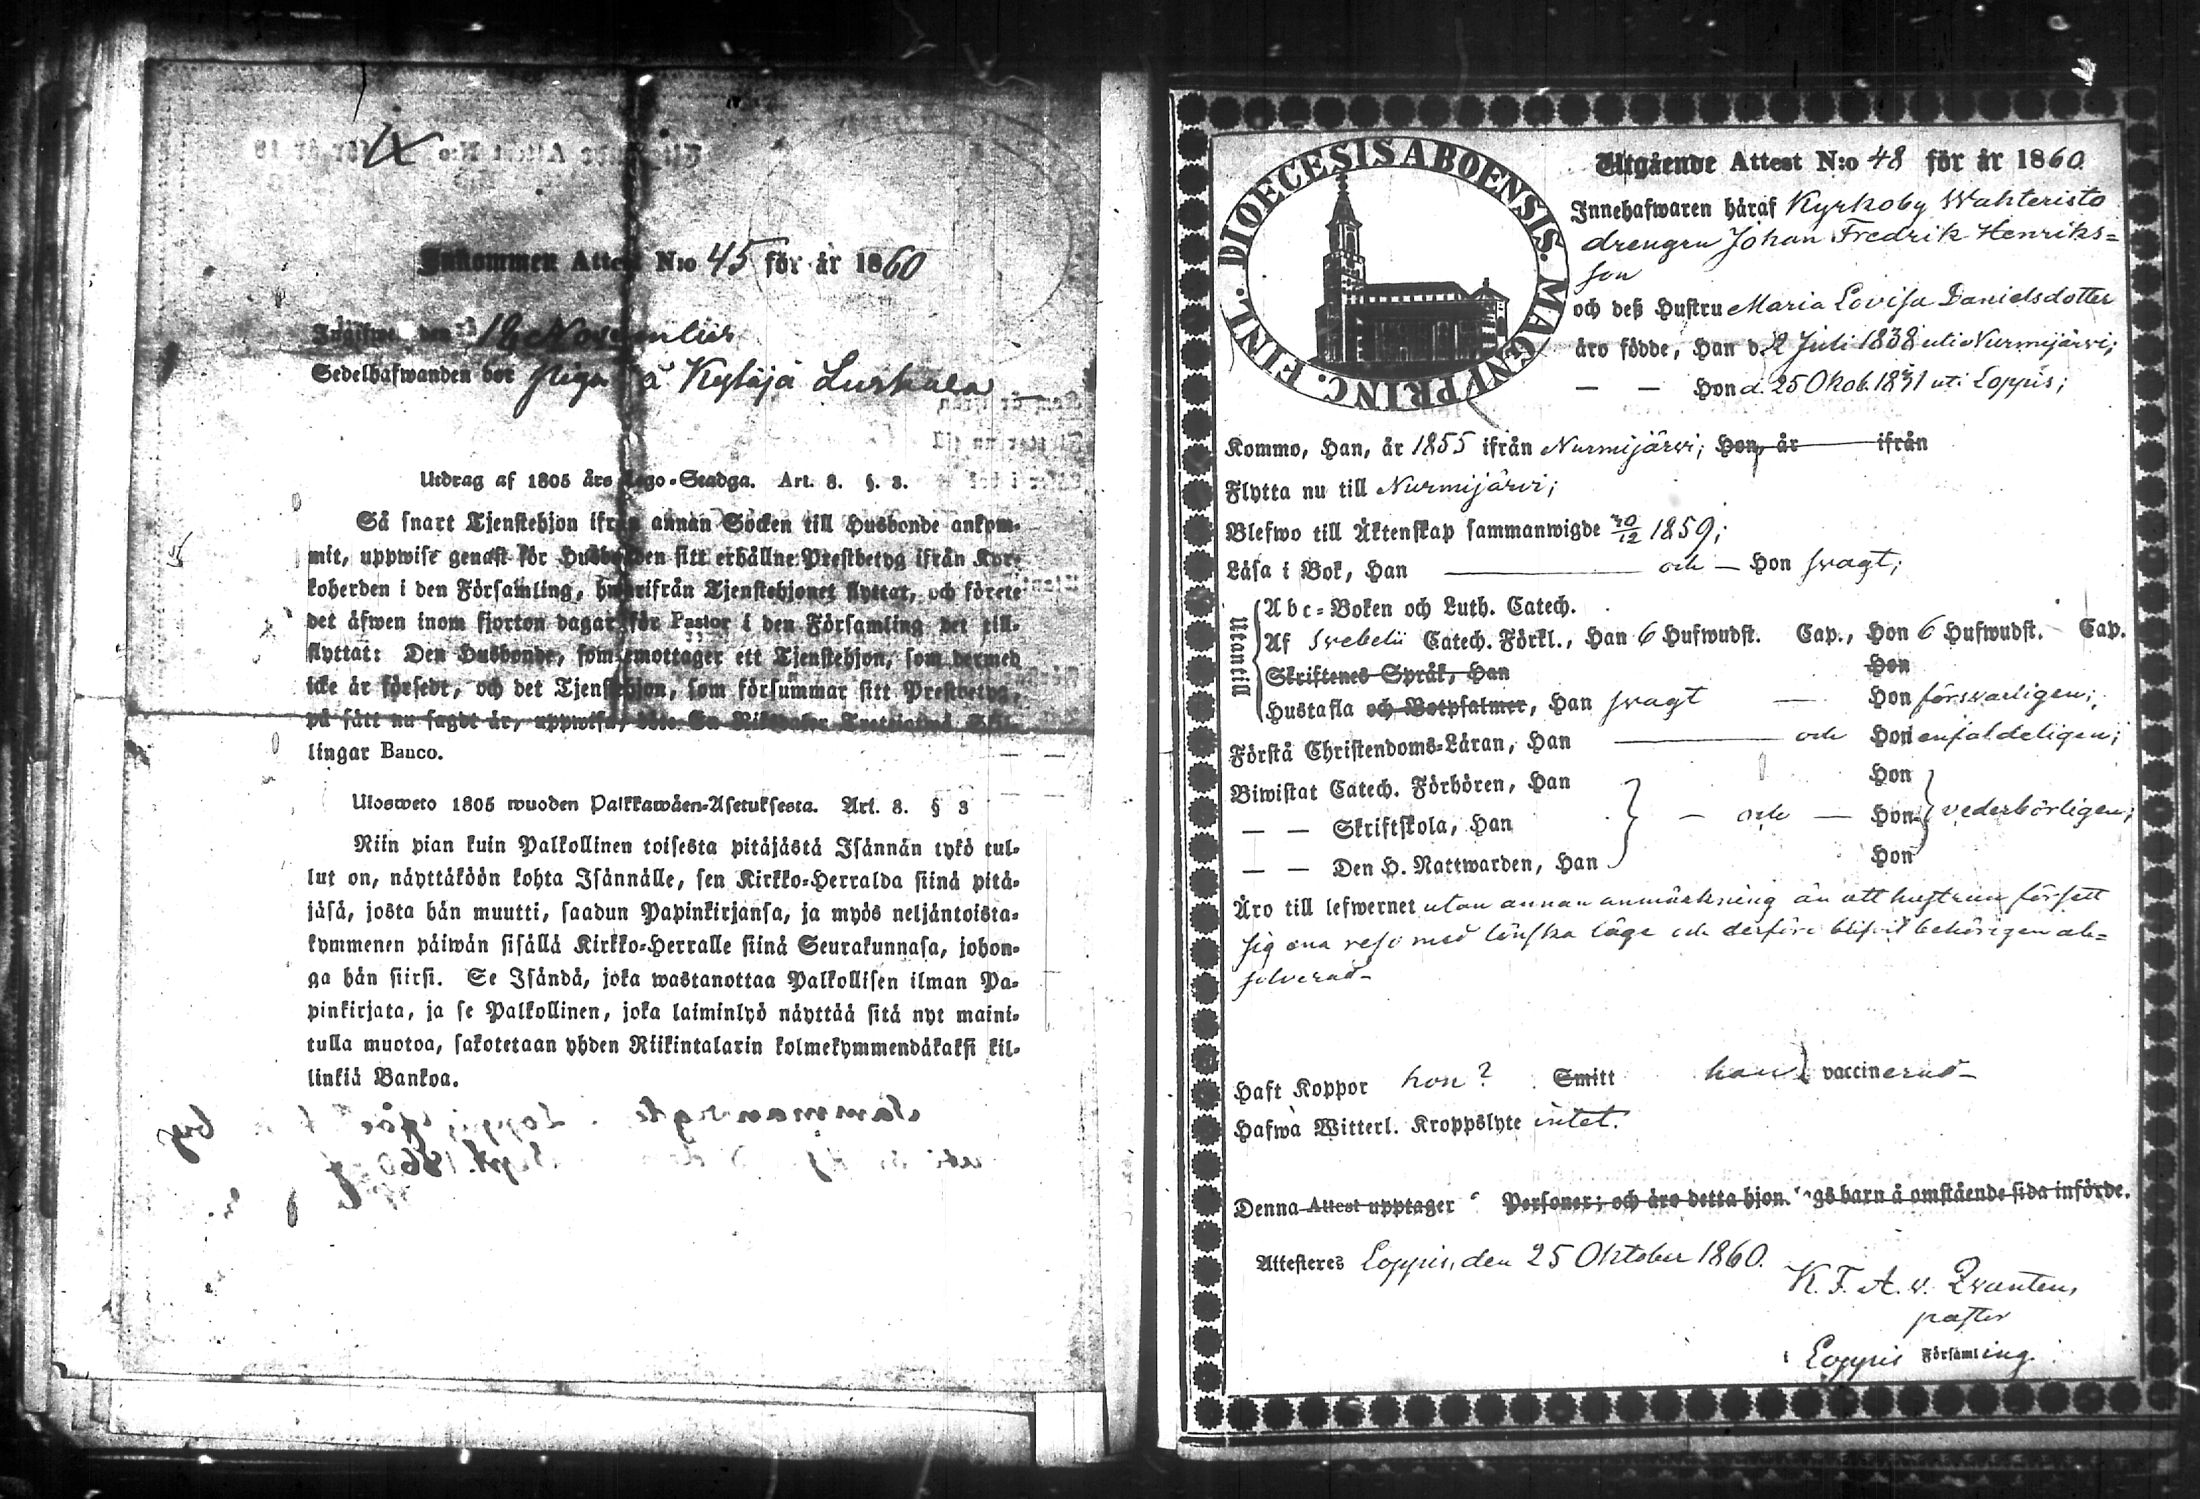 IX
Inkommen Attest N:o 45 för år 1860
Ingifwet den 12 November
Sedelhafwanden bor på Kytäjä
Utdrag af 1805 års Lego-Stadga. Art. 8. §. 3.
Så snart Tjenstehjon ifrån annan Socken till Husbonde ankom-
mit, uppwise genast för Husbonden sitt erhållne Prestbetyg ifrån Kyr-
koherden i den Församling, hwarifrån Tjenstehjonet flyttat, och förete
det äfwen inom fjorton dagar för Pastor i den Församling det till-
flyttat: Den Husbonde, som emottager ett Tjenstehjon, som dermed
icke är försedt, och det Tjenstehjon, som försummar sitt Prestbetyg,
på sätt nu sagdt är, uppwisa, böte En Riksdaler Trettiotwå Skil-
lingar Banco.
Ulosweto 1805 wuoden Palkkawäen-Asetuksesta. Art. 8. § 3
Niin pian kuin Palkollinen toisesta pitäjästä Isännän tykö tul-
lut on, näyttäköön kohta Isännälle, sen Kirkko-Herralda siinä pitä-
jäsä, josta hän muutti, saadun Papinkirjansa, ja myös neljäntoista-
kymmenen päiwän sisällä Kirkko-Herralle siinä Seurakunnasa, johon-
ga hän siirsi. Se Isändä, joka wastanottaa Palkollisen ilman Pa-
pinkirjata, ja se Palkollinen, joka laiminlyö näyttää sitä nyt maini-
tulla muotoa, sakotetaan yhden Riikintalarin kolmekymmendäkaksi kil-
linkiä Bankoa.
DIOECESIS ABOENSIS. MAGNI PRINC. FINL.
Utgående Attest N:o 48 för år 1860.
Innehafwaren häraf Kyrkoby Wahteristo
drengen Johan Fredrik Henriks=
son
och deß Hustru Maria Lovisa Danielsdotter
äro födde, Han d. 2 Juli 1838 uti Nurmijärvi;
— — Hon d. 25 Oktob. 1831 uti Loppis;
Kommo, Han, år 1855 ifrån Nurmijärvi; Hon, år ifrån
Flytta nu till Nurmijärvi;
Blefwo till Äktenskap sammanwigde 30/12 1859;
Läsa i Bok, Han och — Hon svagt;
Utantill
Abc-Boken och Luth. Catech.
Af Svebelii Catech. Förkl., Han 6 Hufwudst. Cap., Hon 6 Hufwudst. Cap.
Skriftenes Språk, Han Hon
Hustafla och Botpsalmer, Han svagt — Hon försvarligen;
Förstå Christendoms-Läran, Han och Hon enfaldeligen;
Biwistat Catech. Förhören, Han Hon
— — Skriftskola, Han — och — Hon vederbörligen;
— — Den H. Nattwarden, Han Hon
Äro till lefwernet utan annan anmärkning än att hustrun försett
sig ena resa med lönska läge och derföre blifvit behörigen ab=
solverad—
Haft Koppor hon? Smitt han vaccinerad—
Hafwa Witterl. Kroppslyte intet.
Denna Attest upptager Personer; och äro detta hjonelags barn å omstående sida införde.
Attesteres Loppis, den 25 Oktober 1860.
K. F. A. v. Qvanten,
pastor
i Loppis Församling.